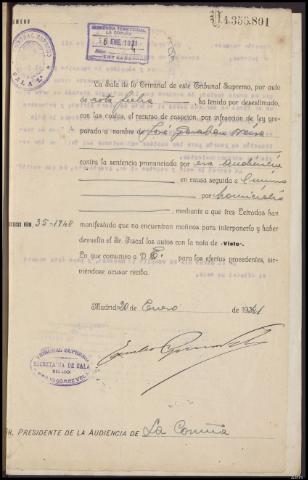 11.355.891
AUDIENCIA TERRITORIAL
LA CORUÑA
ENE. 1941
ENTRADA
La Sala de lo Criminal de este Tribunal Supremo, por auto
de esta fecha, ha tenido por desestimado,
con las costas, el recurso de casación, por infracción de ley pre-
parado a nombre de José
contra la sentencia pronunciada por esa Audiencia
en causa seguida al mismo
por homicidio
, mediante a que tres Letrados han
NÚM. 35-1940
manifestado que no encuentran motivos para interponerlo y haber
devuelto el Sr. Fiscal los autos con la nota de «Visto».
Lo que comunico a V. E. para los efectos procedentes, sir-
viéndose acusar recibo.
Madrid 20 de Enero de 1941
TRIBUNAL SUPREMO
SECRETARIA DE SALA
SR. PRESIDENTE DE LA AUDIENCIA DE La Coruña